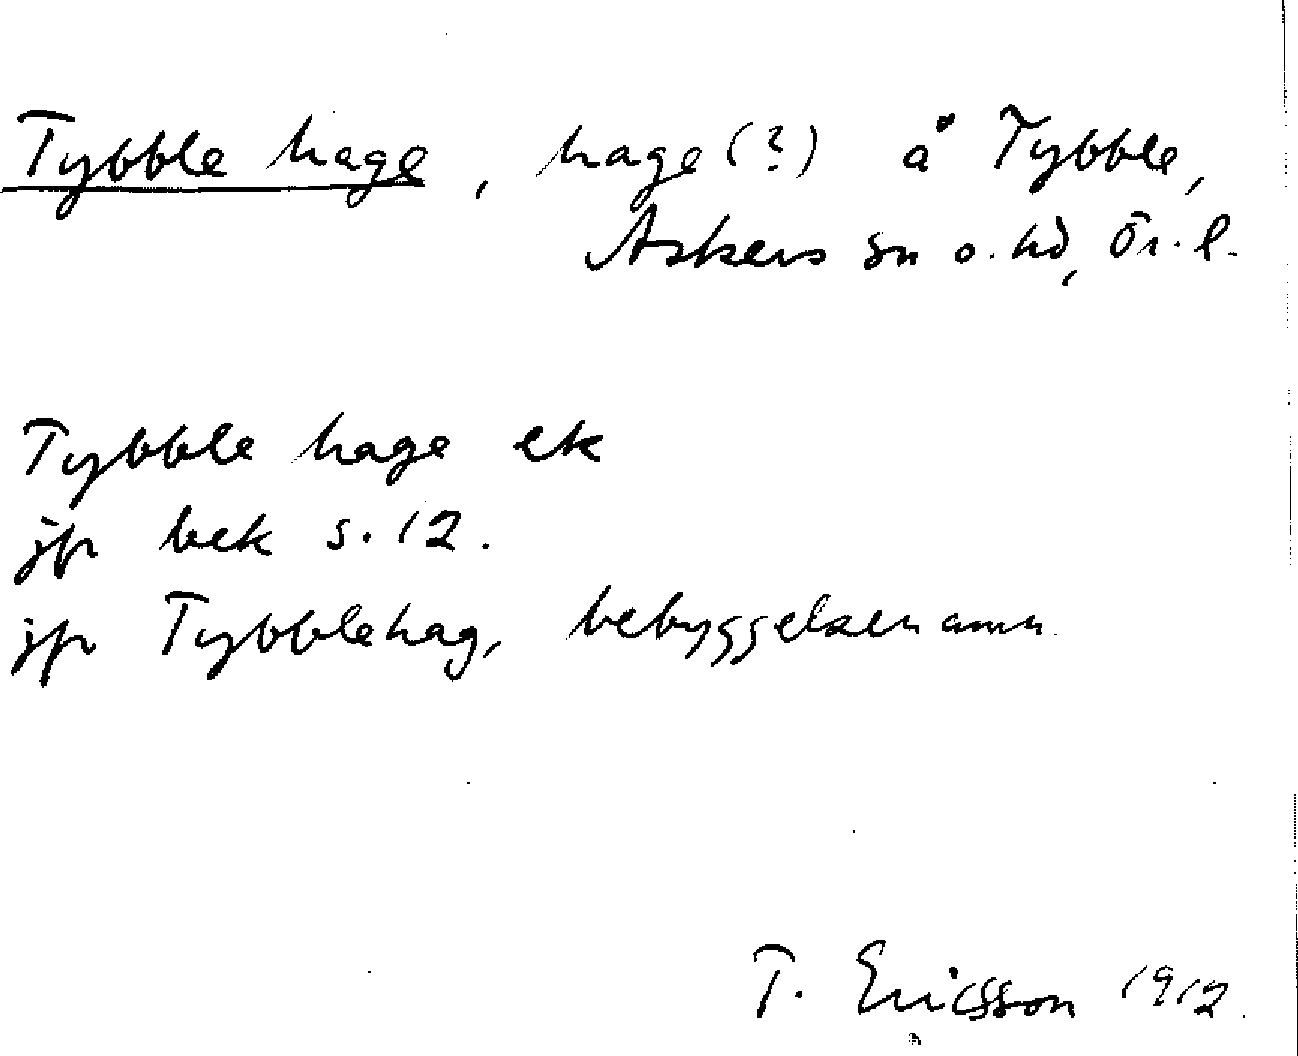 Tybble hage, hage (?) å Tybble,
Askers sn o. hd, Ör. l.
Tybble hage ek
jfr bek s. 12.
jfr Tybblehag, bebyggelsenamn
T. Ericsson 1912.